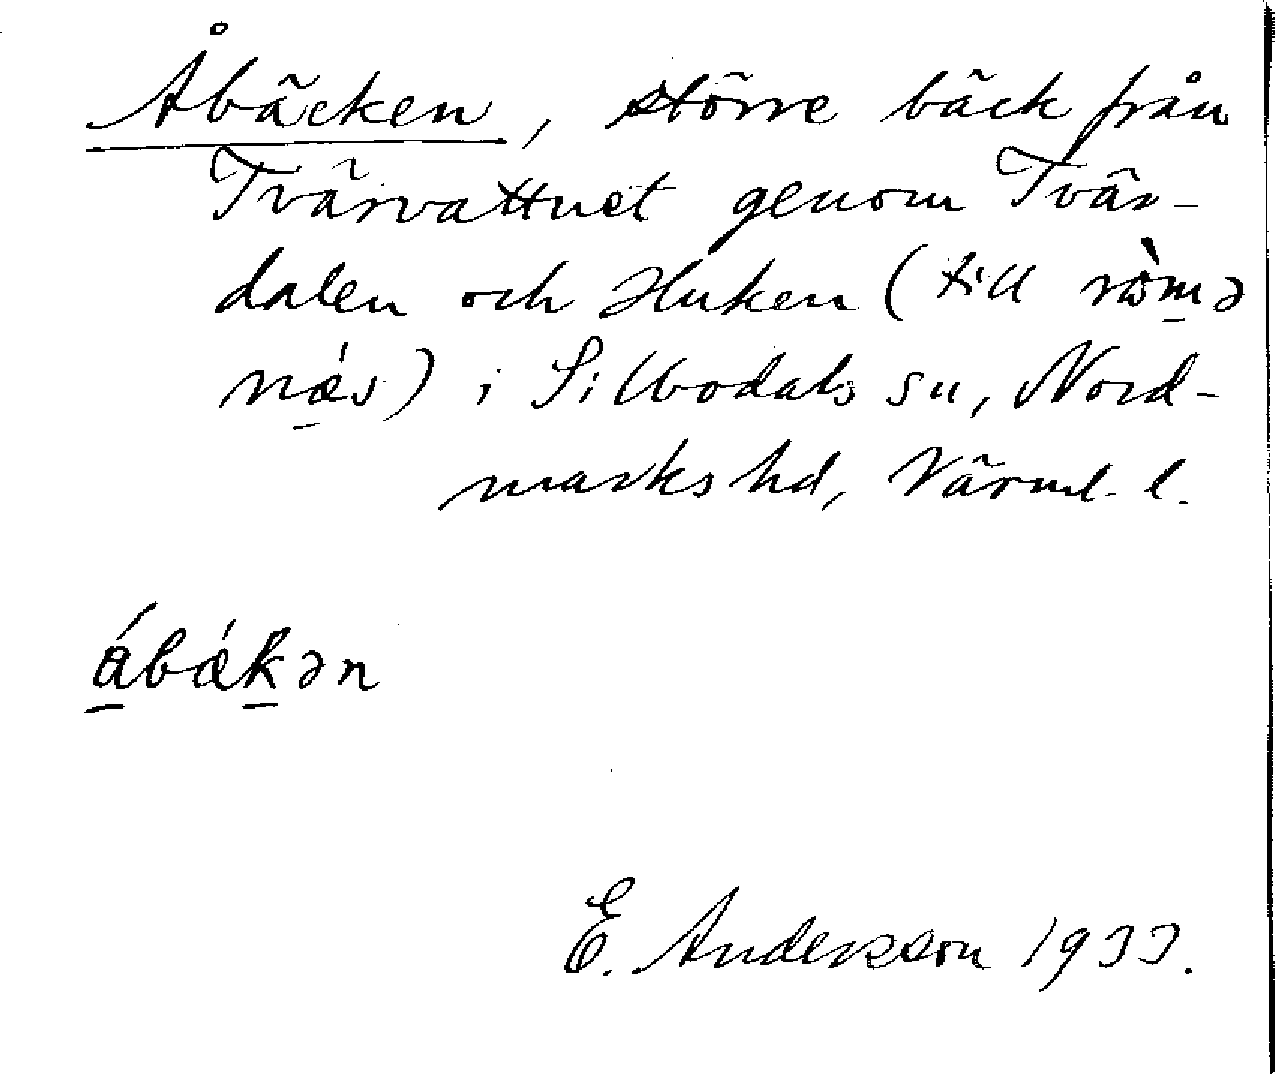 Åbäcken, större bäck från
Tvärvattnet genom Tvär-
dalen och Huken (till ròm̱ə
nǽ̱s) i Silbodals sn, Nord-
marks hd, Värml. l.
á̱bǽḵən
E. Andersson 1933.